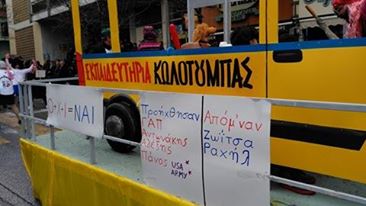 ΕΚΠΑΙΔΕΥΤΗΡΙΑ ΚΩΛΟΤΟΥΜΠΑΣ
Ο+Ι-Ι=ΝΑΙ
Προήχθησαν
ΓΑΠ
Αντωνάκης
Αλέξης
Πάνος USA ARMY
Απόμ'ναν
Ζωίτσα
Ραχήλ